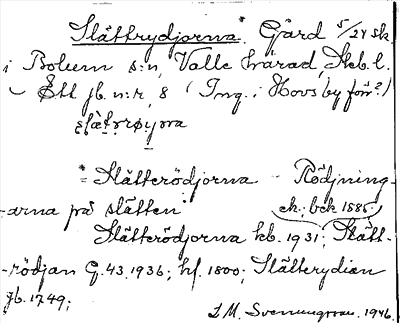 Slättrydjorna. Gård 5/24 sk.
i Bolum s:n, Valle härad, Skb. l.
Ett jb. n:r, 8 (Ing. i Hovs by förr?)
"= Slätterödjorna - Rödjning-
-arna på slätten" ek. bck 1886;
Slätterödjorna kb. 1931; Slätt-
-rödjan G. 43. 1936; hf. 1800; Slätterydian
jb. 1749;
S. M. Svenungsson. 1946.